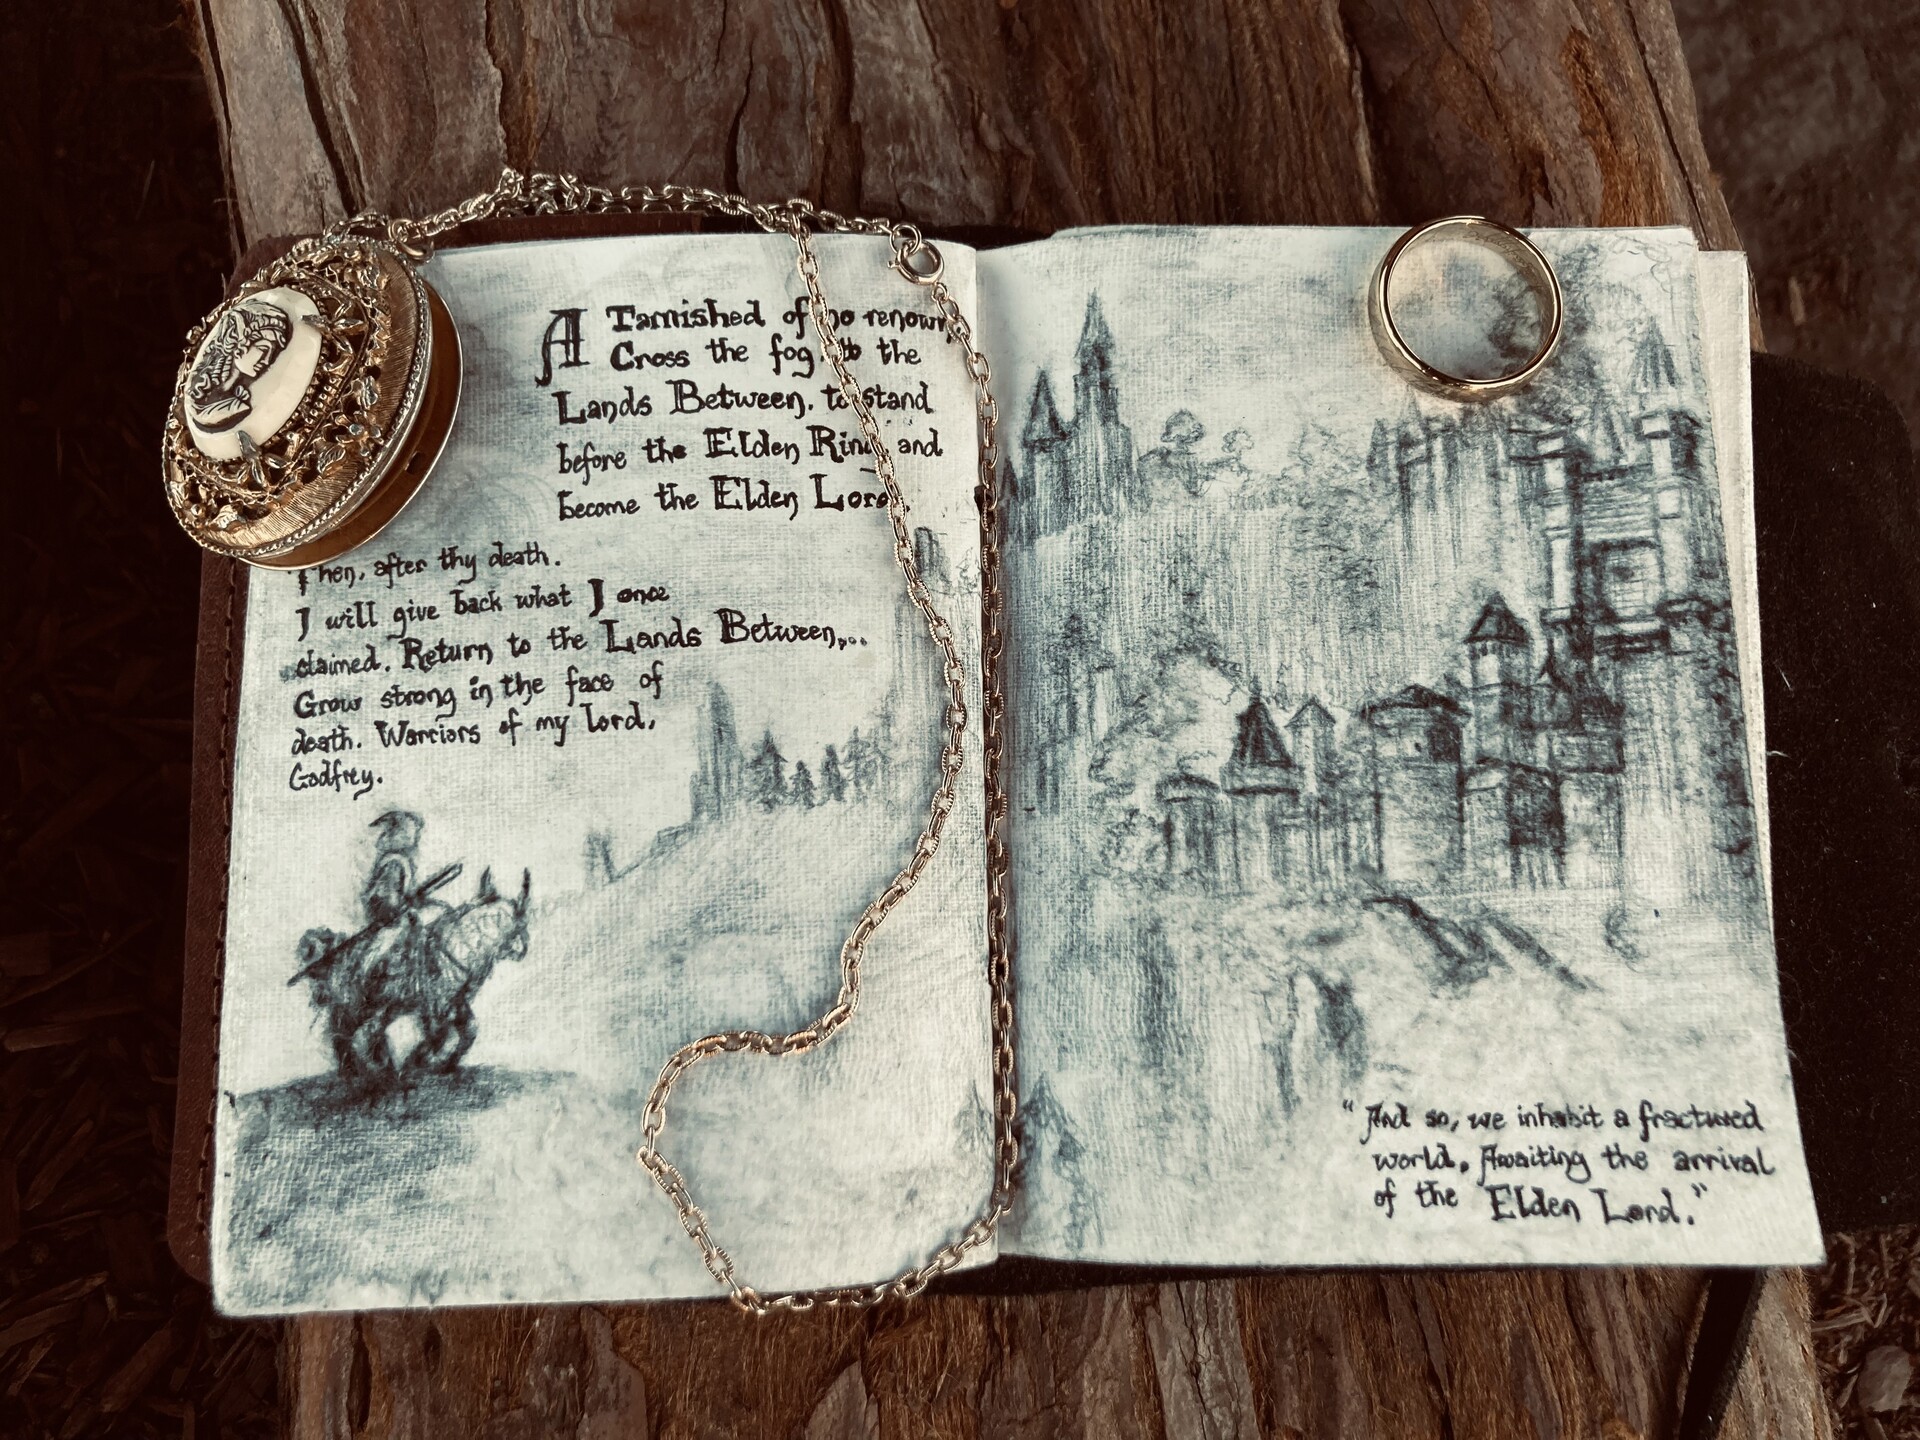 A Tarnished of no renown,
Cross the fog, to the
Lands Between. to stand
before the Elden Ring and
become the Elden Lord
Then, after thy death.
I will give back what I once
claimed. Return to the Lands Between,...
Grow strong in the face of
death. Warriors of my lord,
Godfrey.
"And so, we inhabit a fractured
world. Awaiting the arrival
of the Elden Lord."